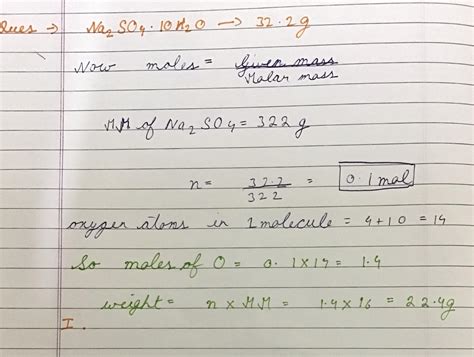 Ques → Na2SO4·10H2O → 32.2g
Now moles = Given mass / Molar mass
MM of Na2SO4 = 322 g
n = 32.2 / 322 = 0.1 mol
oxygen atoms in 1 molecule = 4+10 = 14
So moles of O = 0.1×14 = 1.4
weight = n × MM = 1.4 × 16 = 22.4g
I.